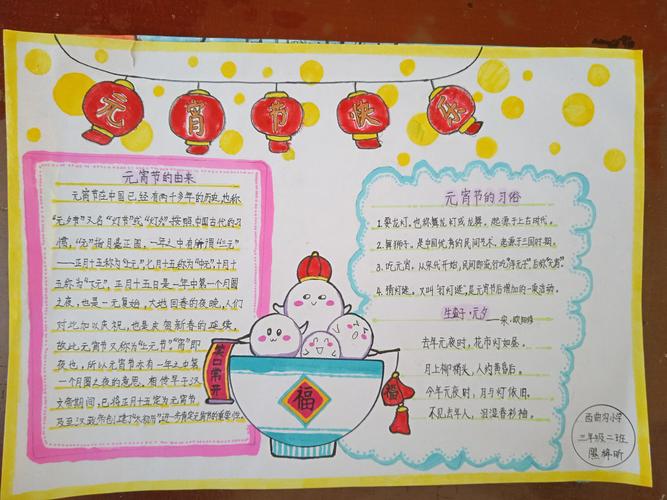 元宵节快乐
元宵节的由来
元宵节在中国已经有两千多年的历史,也称
"元夕节"又名"灯节"或"灯火"按照中国古代的习
惯,"元"指月亮正圆,一年之中有所谓"三元"
——正月十五称为"上元",七月十五称为"中元",十月十
五称为"下元"。正月十五日是一年中第一个月圆
之夜,也是一元复始,大地回春的夜晚,人们
对此加以庆祝,也是庆贺新春的延续,
故此元宵节又称为"上元节""宵"即
夜也,所以元宵节亦有一年之中第
一个月圆之夜的意思。相传早于汉
文帝期间,已将正月十五定为元宵节,
及至汉武帝创建
进一步肯定元宵节的重要性。
元宵节的习俗
1.耍龙灯,也称舞龙灯或龙舞。起源于上古时代。
2.舞狮子,是中国优秀的民间艺术。起源于三国时期。
3.吃元宵,从宋代开始,民间即流行吃"浮元子"后称"元宵"。
4.猜灯谜,又叫"打灯谜",是元宵节后增加的一项活动。
生查子·元夕
——宋·欧阳修
去年元夜时,花市灯如昼。
月上柳梢头,人约黄昏后。
今年元夜时,月与灯依旧。
不见去年人,泪湿春衫袖。
笑口常开
福
福
小学
三年级二班